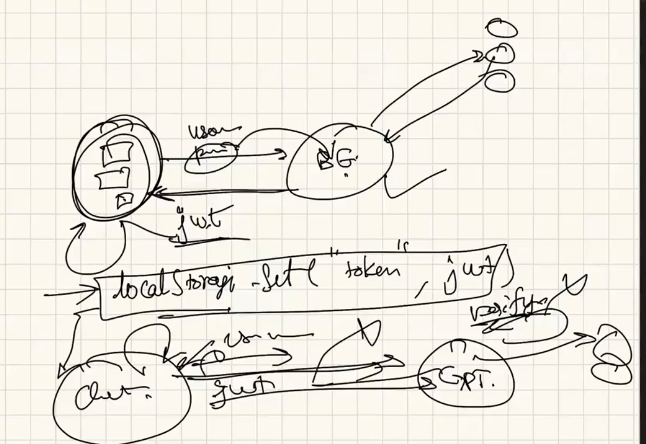 user
BG.
jwt
localStorage.set("token", jwt)
verify
user
jwt
GPT.